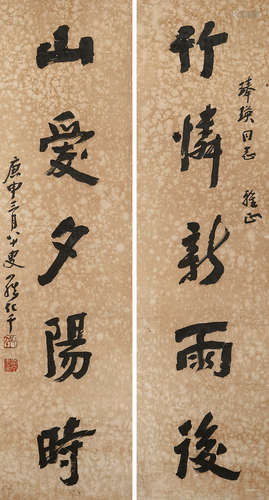 竹憐新雨後
臻瑛同志 雅正
山愛夕陽時
庚申三月八十叟